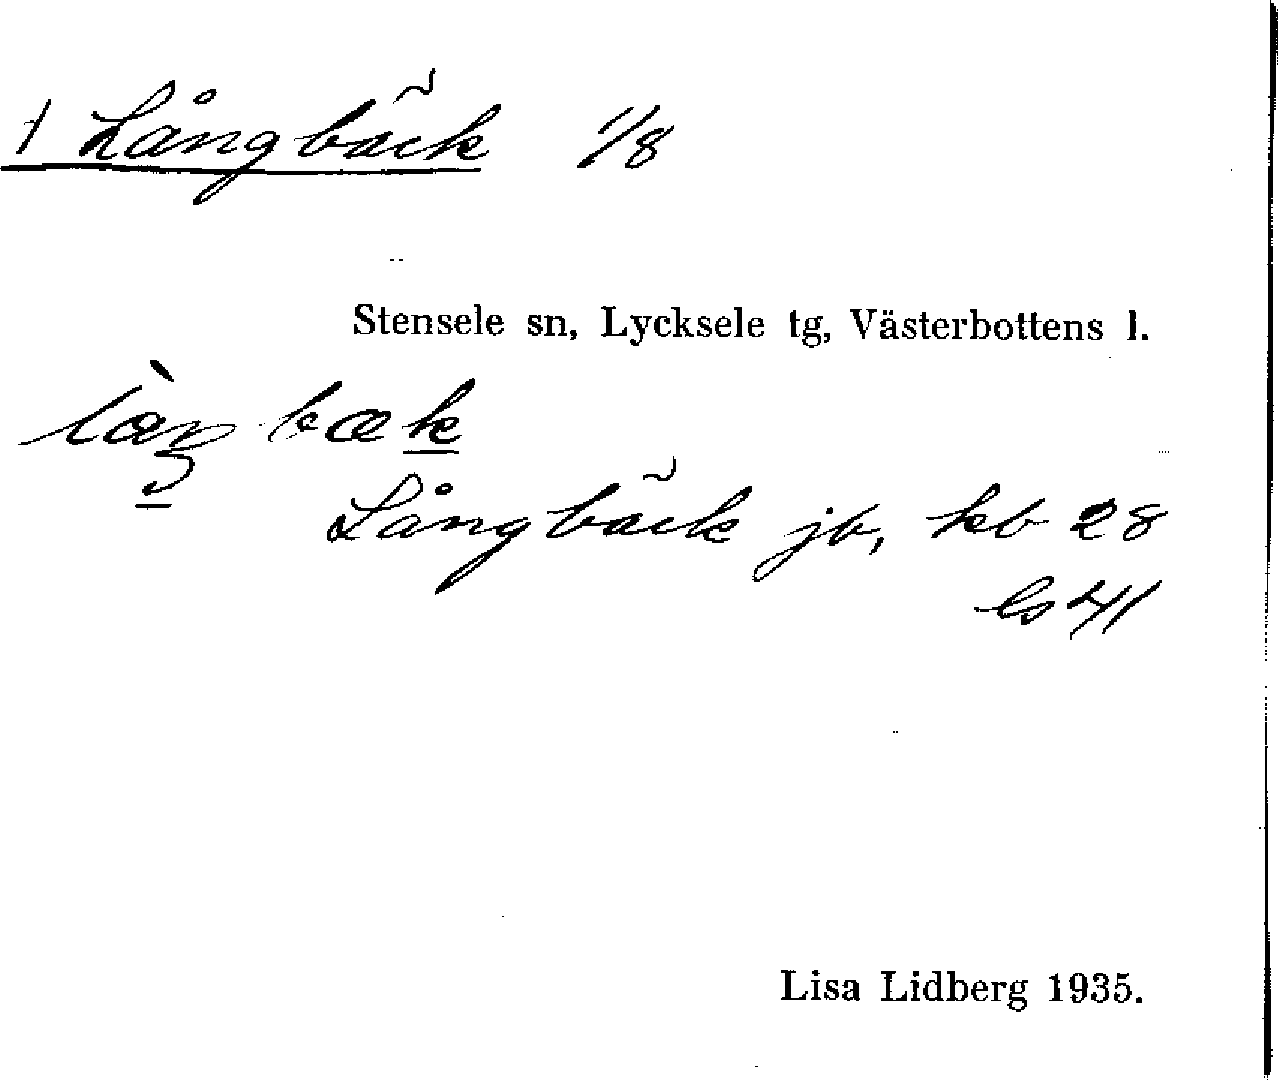 1 Långbäck 1/8
Stensele sn, Lycksele tg, Västerbottens l.
bæk
Långbäck jb, kb 28
ls 41
Lisa Lidberg 1935.